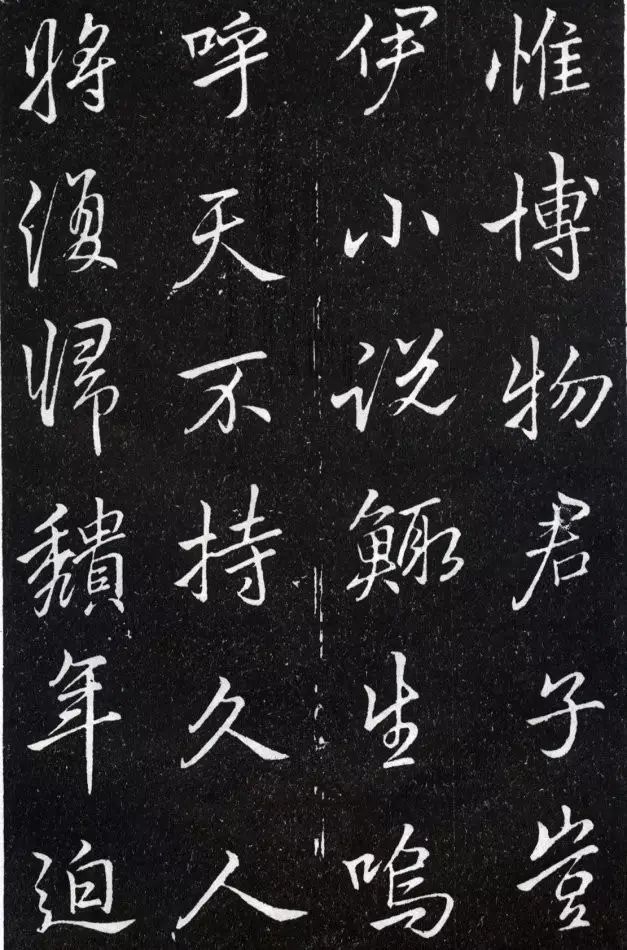 惟博物君子豈
伊小說鯫生嗚
呼天不持久人
將復歸穨年迫